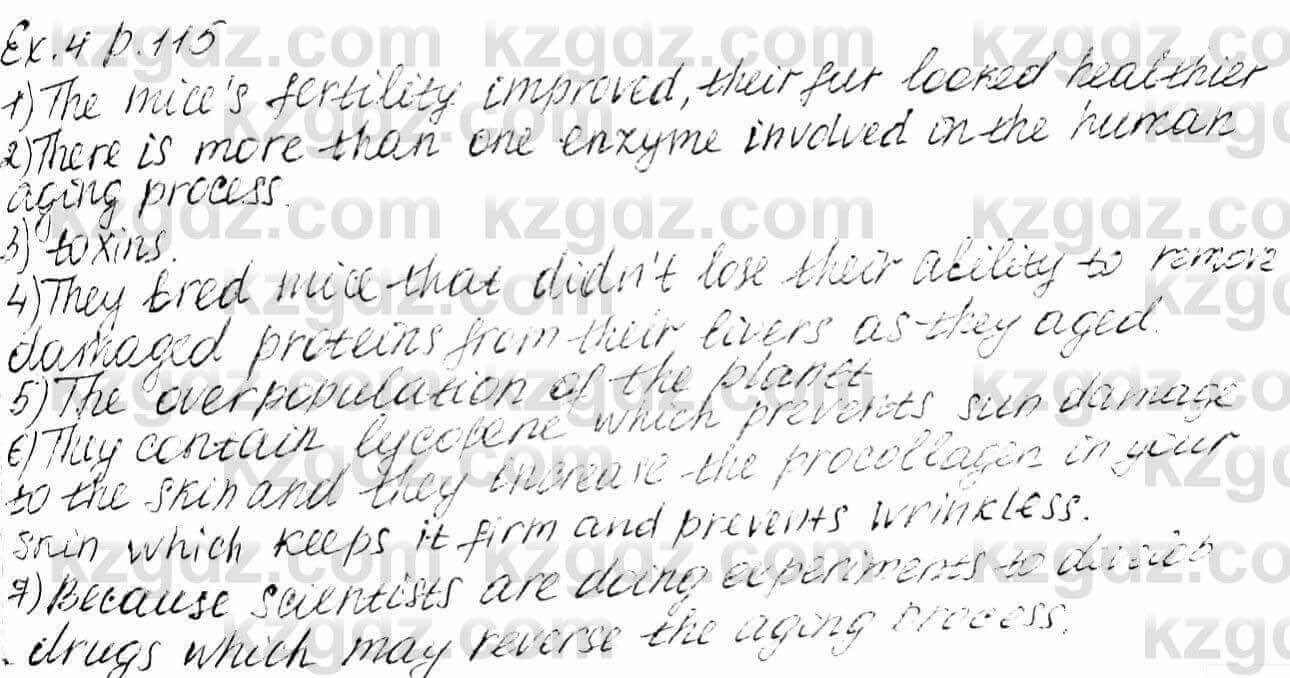 Ex.4 p.115
1) The mice's fertility improved, their fur looked healthier
2) There is more than one enzyme involved in the human
aging process.
3) toxins.
4) They bred mice that didn't lose their ability to remove
damaged proteins from their livers as they aged.
5) The overpopulation of the planet
6) They contain lycopene which prevents sun damage
to the skin and they increase the procollagen in your
skin which keeps it firm and prevents wrinkless.
7) Because scientists are doing experiments to develop
drugs which may reverse the aging process.
kzgdz.com